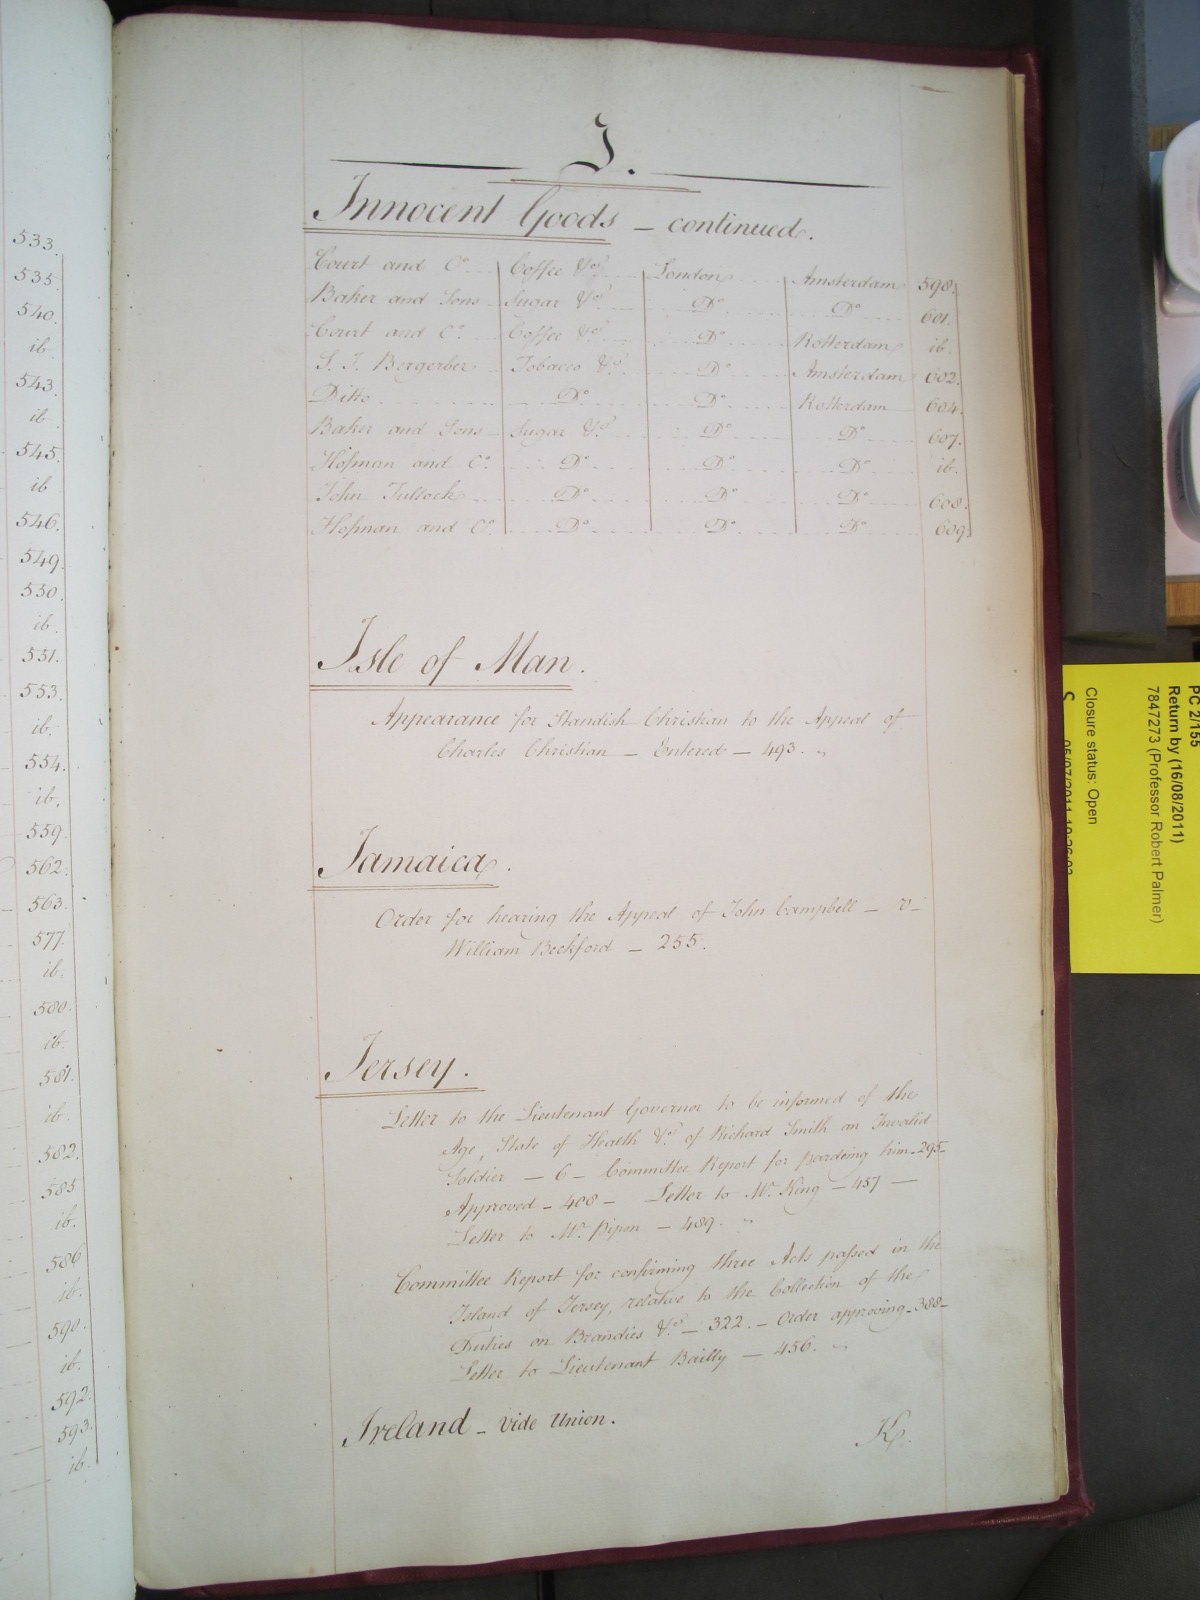 533.
535.
540.
ib.
543.
ib
545.
ib
546.
549.
550.
ib.
551.
553.
ib.
554.
ib.
559.
562.
563.
577.
ib.
580.
ib.
581.
ib.
582.
585.
ib.
586
ib.
590.
ib.
592.
593.
ib.
I.
Innocent Goods - continued.
Court and Co. Coffee &c. London Amsterdam 598.
Baker and Sons Sugar &c. Do. Do. 601.
Court and Co. Coffee &c. Do. Rotterdam ib.
S. T. Bergerber Tobacco &c. Do. Amsterdam 602.
Ditto Do. Do. Rotterdam 604.
Baker and Sons Sugar &c. Do. Do. 607.
Hofman and Co. Do. Do. Do. ib.
John Tullock Do. Do. Do. 608.
Hofman and Co. Do. Do. Do. 609.
Isle of Man.
Appearance for Standish Christian to the Appeal of
Charles Christian - Entered - 493.
Jamaica.
Order for hearing the Appeal of John Campbell - v -
William Beckford - 255.
Jersey.
Letter to the Lieutenant Governor to be informed of the
Age, State of Health &c. of Richard Smith an Invalid
Soldier - 6 - Committee Report for pardoing him - 295 -
Approved - 408 - Letter to Mr. King - 457 -
Letter to Mr. Pipon - 489.
Committee Report for confirming three Acts passed in the
Island of Jersey, relative to the Collection of the
Duties on Brandies &c. - 322. - Order approving - 388 -
Letter to Lieutenant Bailly - 456.
Ireland - vide Union.
K.
PC 2/155
Return by (16/08/2011)
7847273 (Professor Robert Palmer)
Closure status: Open